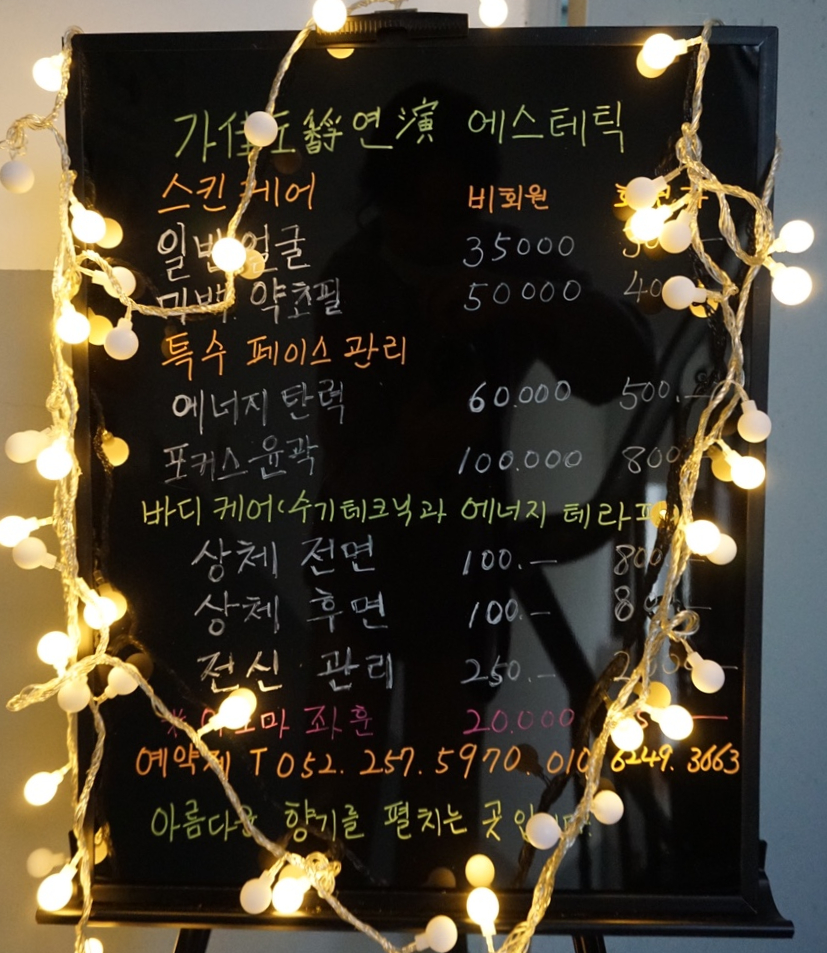 에스테틱
스킨케어 비회원
일반얼굴 35000
미백 약초필 50000
특수 페이스 관리
에너지 탄력 60.000 500.—
포커스 윤곽 100.000 800
바디 케어(수기테크닉과 에너지 테라피
상체 전면 100.— 800
상체 후면 100.—
전신 관리 250.—
좌훈 20.000
예약제 T 052. 257. 5970. 010 6249. 3663
아름다운 향기를 펼치는 곳입니다